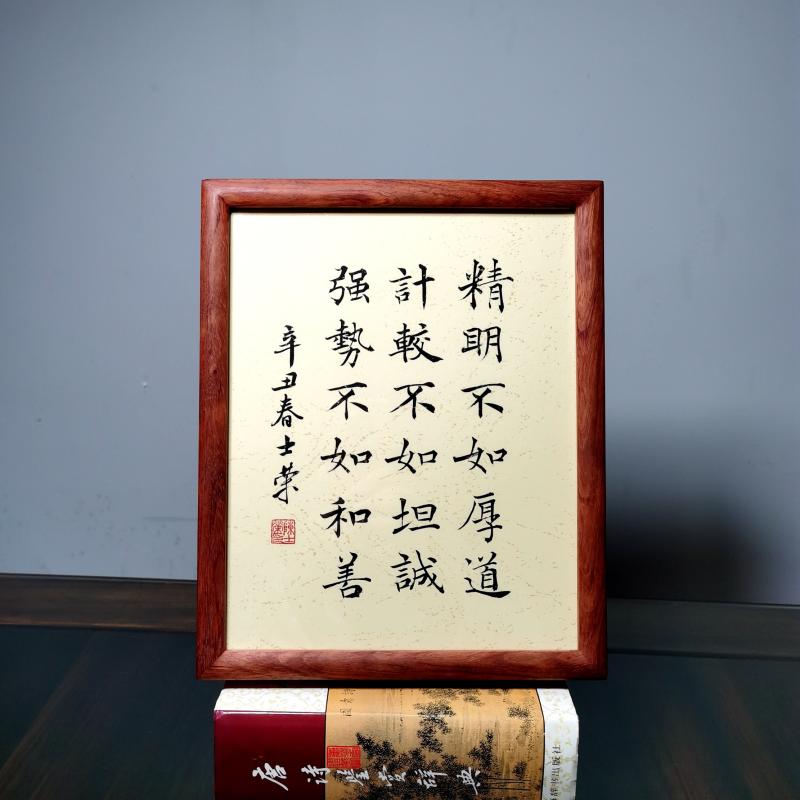 精明不如厚道
計較不如坦誠
强勢不如和善
辛丑春士荣
唐诗鉴赏辞典
辞书出版社